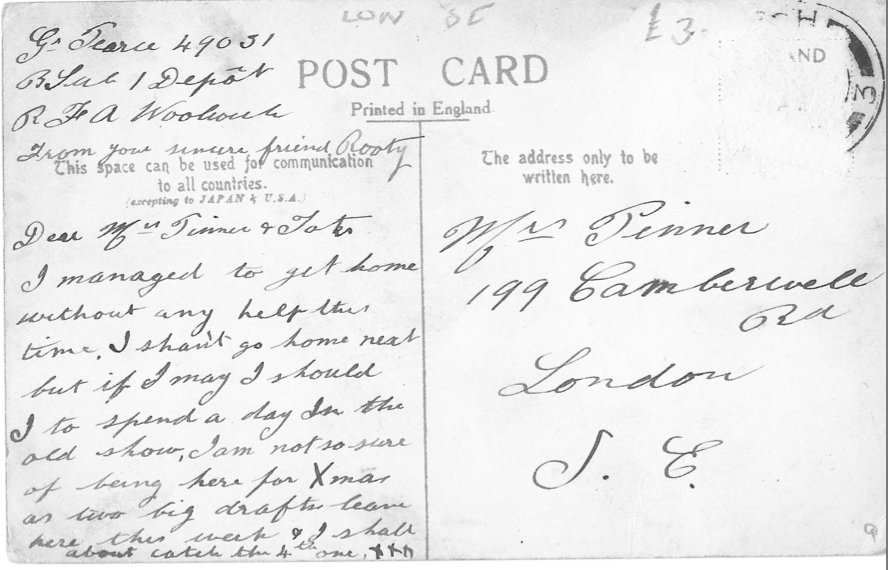 LOW SE
£3.
Gr Pearce 49031
B Sub 1 Depôt
R F A Woolwich
From your sincere friend Rooty
POST CARD
Printed in England.
This space can be used for communication
to all countries.
(excepting to JAPAN & U.S.A.)
The address only to be
written here.
Dear Mrs Pinner &
I managed to get home
without any help this
time, I shan't go home next
but if I may I should
I to spend a day In the
old show, I am not so sure
of being here for Xmas
as two big drafts leave
here this week & I shall
about catch the 4th one. xxx
Mrs Pinner
199 Camberwell
Rd
London
S. E.
ND
3
9